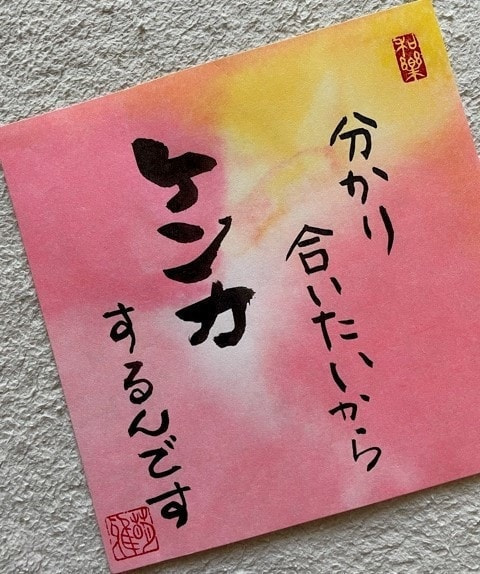 和樂
分かり
合いたいから
ケンカ
するんです